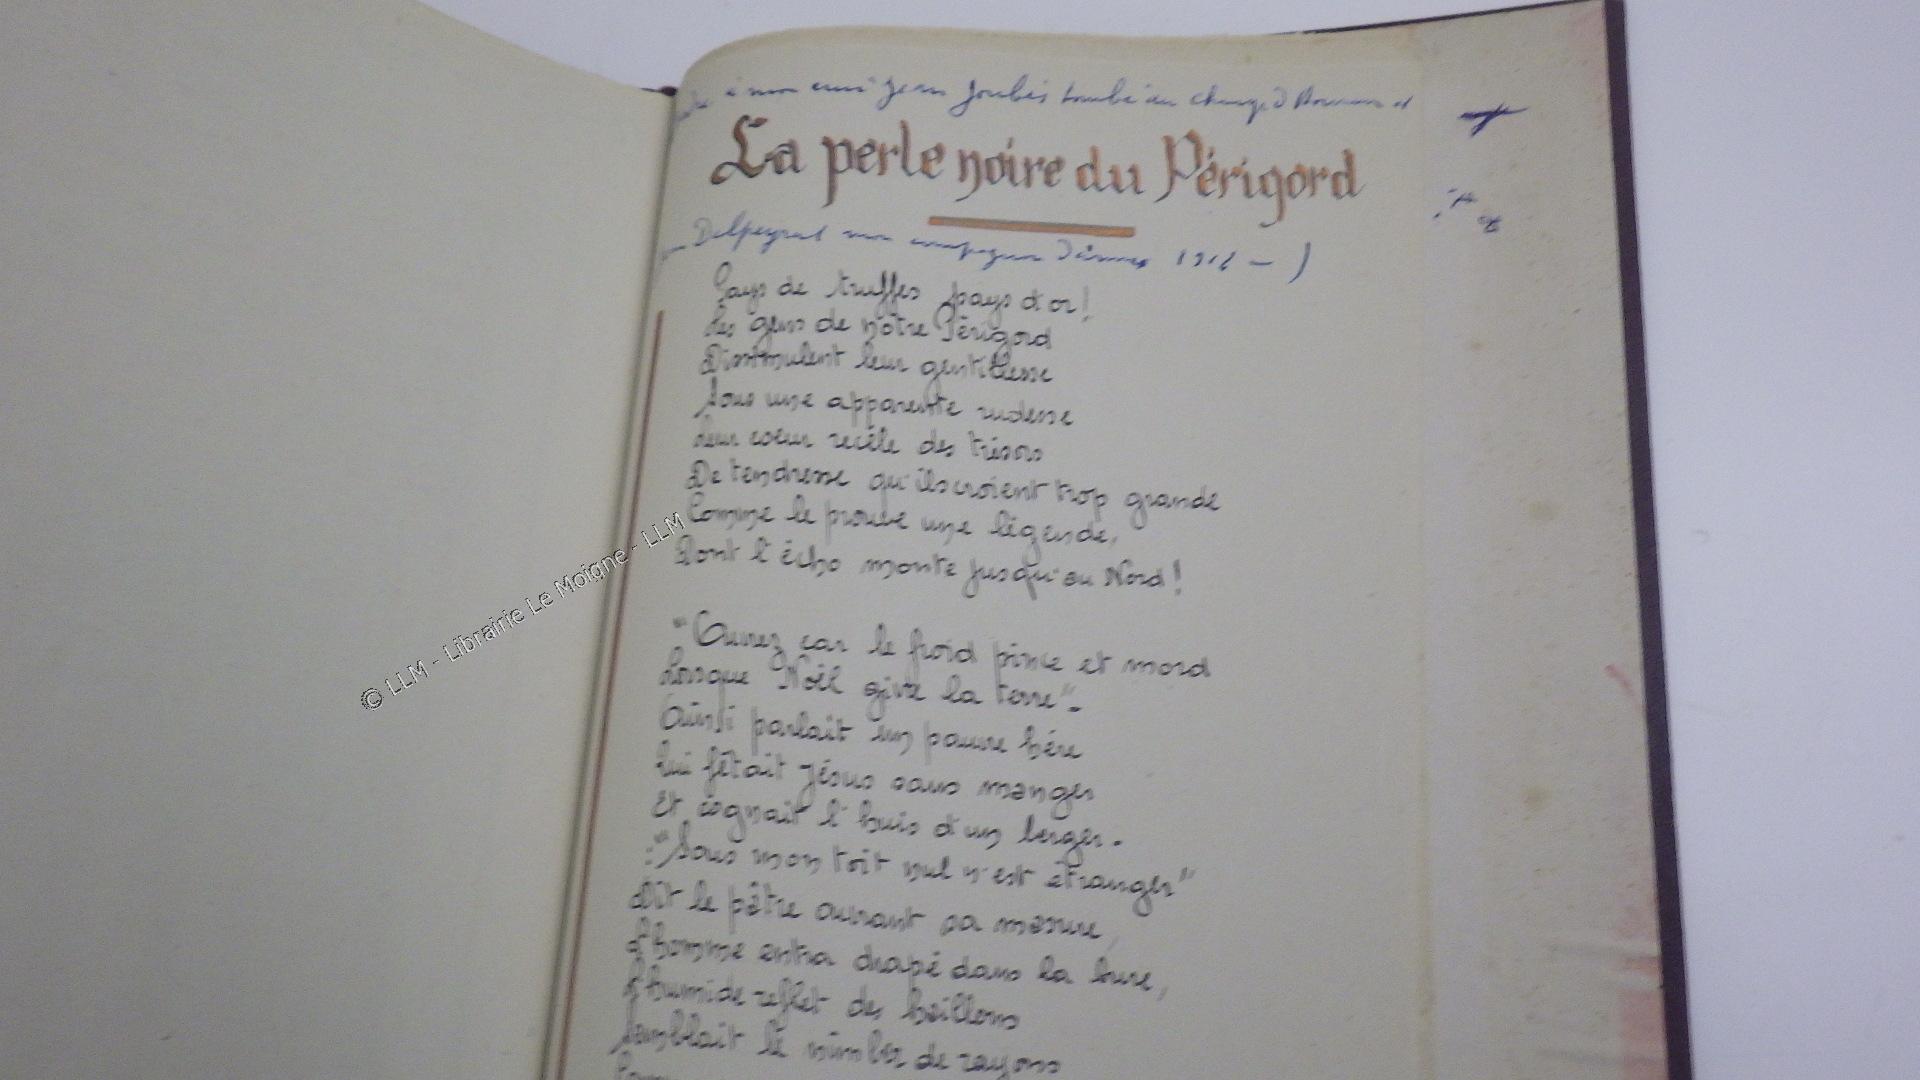 à mon ami Jean Joubés tombé au champ d'Honneur et
La perle noire du Périgord
Delpeyrat mon compagnon d'armes 1914 - )
Pays de truffes pays d'or!
Les gens de notre Périgord
Dissimulent leur gentillesse
Sous une apparente rudesse
Leur coeur recèle des trésors
De tendresse qu'ils croient trop grande
Comme le prouve une légende,
Dont l'écho monte jusqu'au Nord!
"Ouvrez car le froid pince et mord
Lorsque Noël givre la terre".
Ainsi parlait un pauvre hére
Qui fêtait Jésus sans manger
Et cognait l'huis d'un berger.
:"Sous mon toit nul n'est étranger"
Dit le pâtre ouvrant sa masure,
L'homme entra drapé dans la bure,
L'humide reflet des haillons
Semblait le nimber de rayons
© LLM - Librairie Le Moigne - LLM